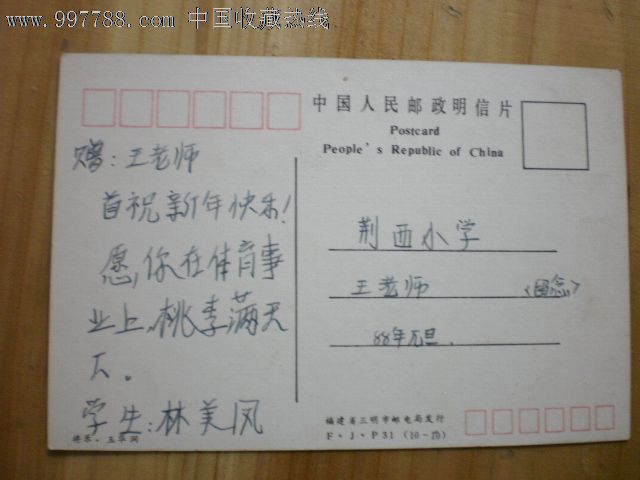 www.997788.com 中国收藏热线
中国人民邮政明信片
Postcard
People's Republic of China
赠：王老师
首祝新年快乐！
愿，你在体育事
业上，桃李满天
下。
学生：林美凤
荆西小学
王老师 〈留念〉
88年元旦.
将乐·玉华洞
福建省三明市邮电局发行
F·J·P31 (10-